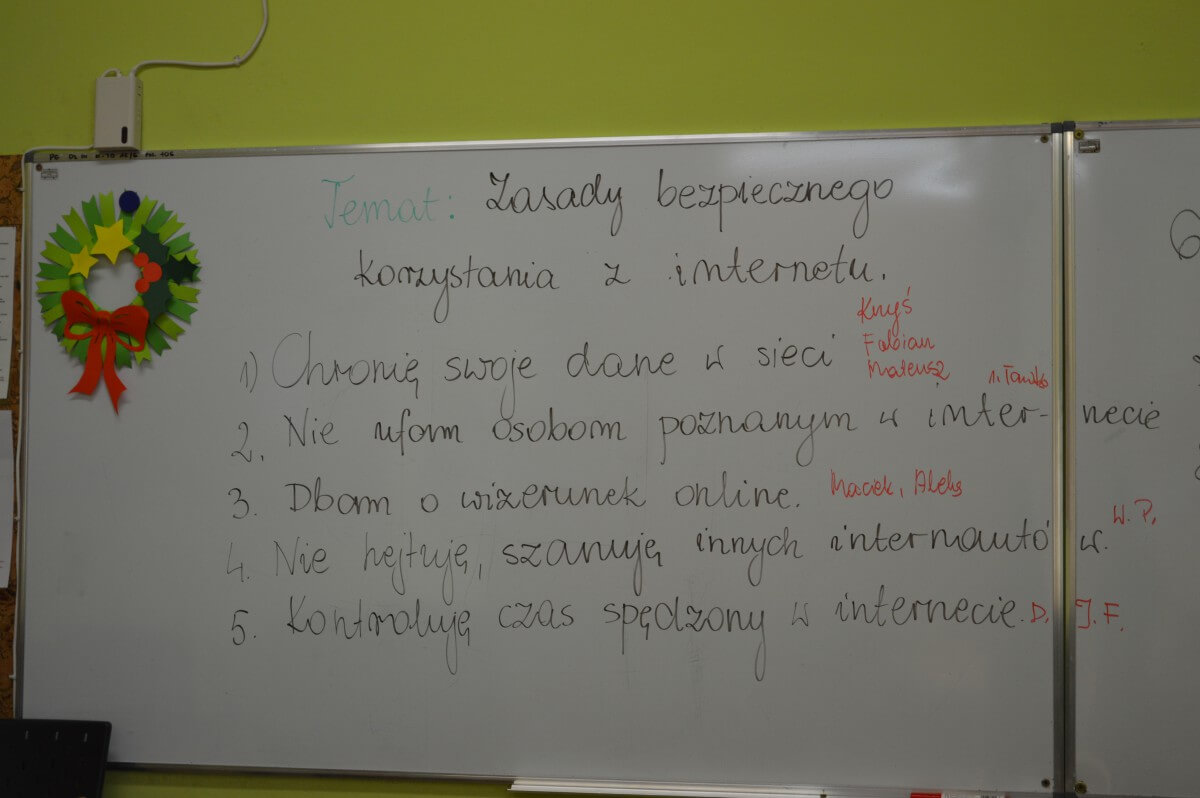 Temat: Zasady bezpiecznego
korzystania z internetu.
Kryś
Fabian
Mateusz
1) Chronię swoje dane w sieci
2. Nie ufam osobom poznanym w inter- necie
3. Dbam o wizerunek online. Maciek, Aleks
W. P.
4. Nie hejtuję, szanuję innych internautów.
5. Kontroluję czas spędzony w internecie. D. J. F.